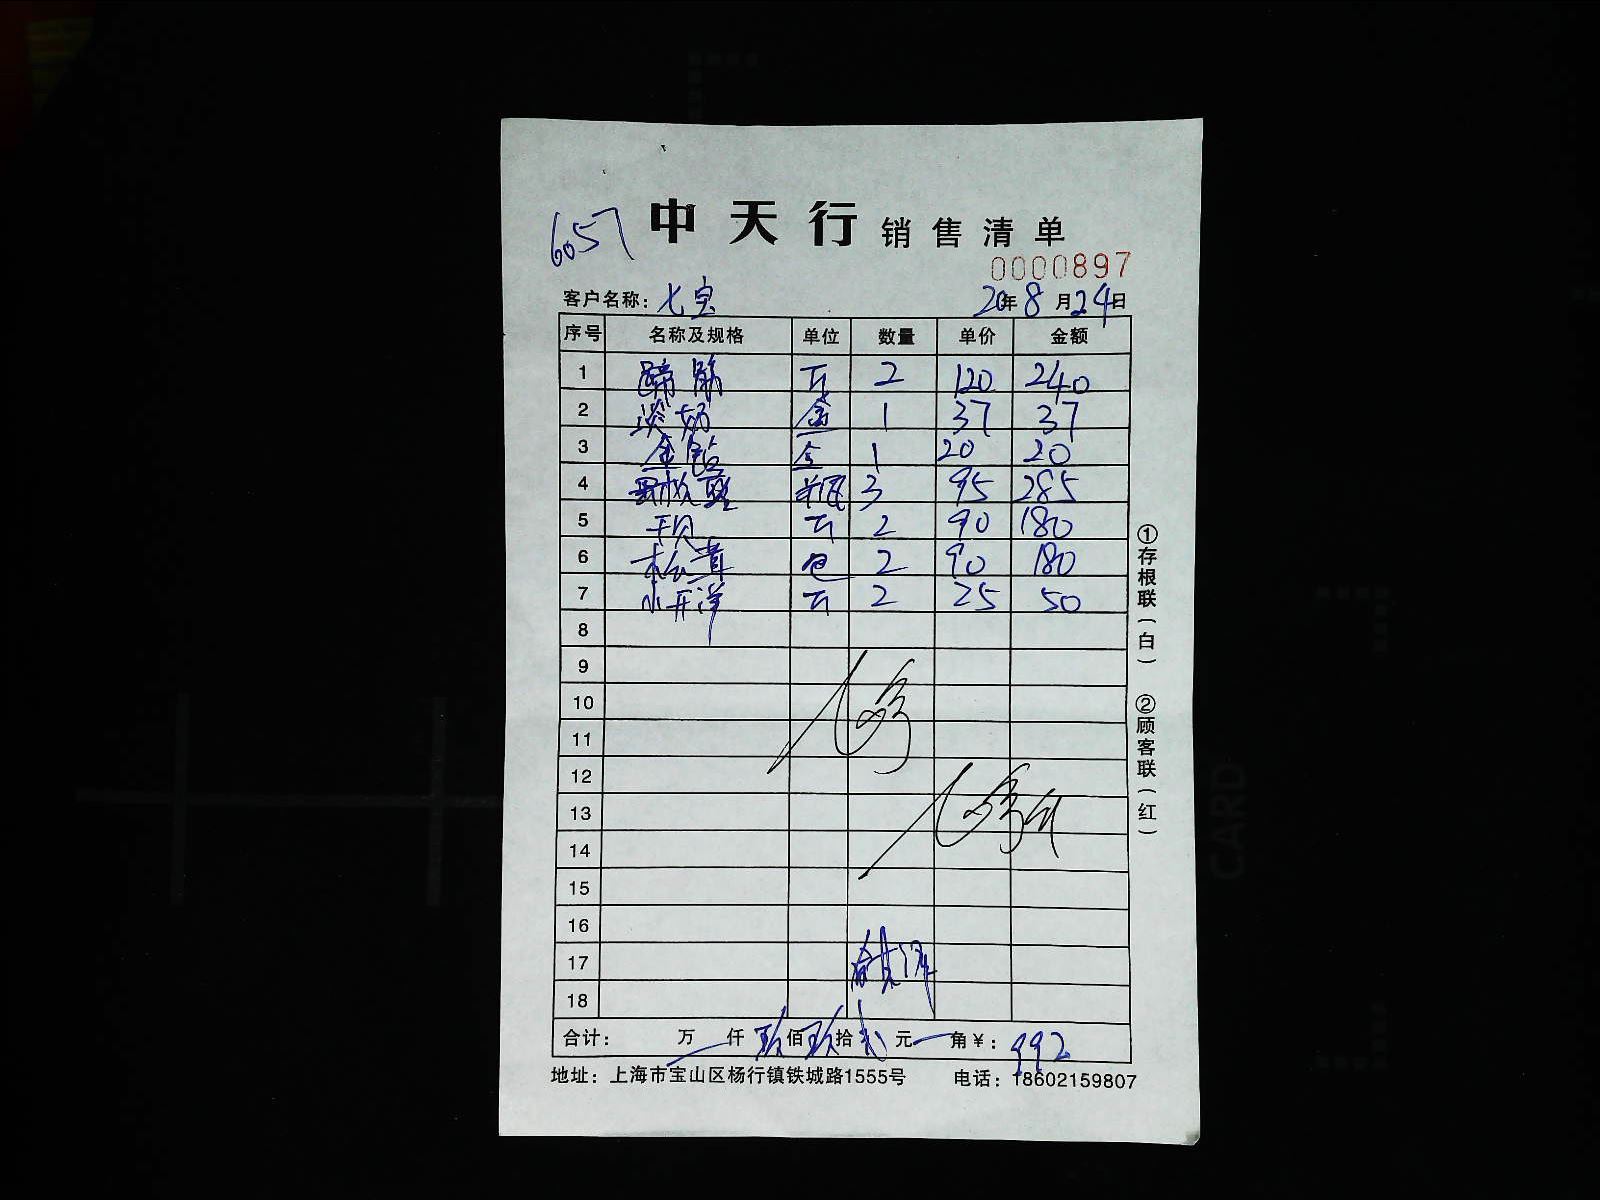 6057
中天行 销售清单
0000897
客户名称：七宝 20年8月24日
序号 名称及规格 单位 数量 单价 金额
1 蹄筋 斤 2 120 240
2 淡奶 盒 1 37 37
3 盒 1 20 20
4 瓶 3 95 285
5 干贝 斤 2 90 180
6 松茸 包 2 90 180
7 小开洋 斤 2 25 50
8
9
10
11
12
13
14
15
16
17
18
合计： 万 仟 玖佰玖拾贰元 角￥：992
地址：上海市宝山区杨行镇铁城路1555号 电话：18602159807
①存根联（白） ②顾客联（红）
CARD